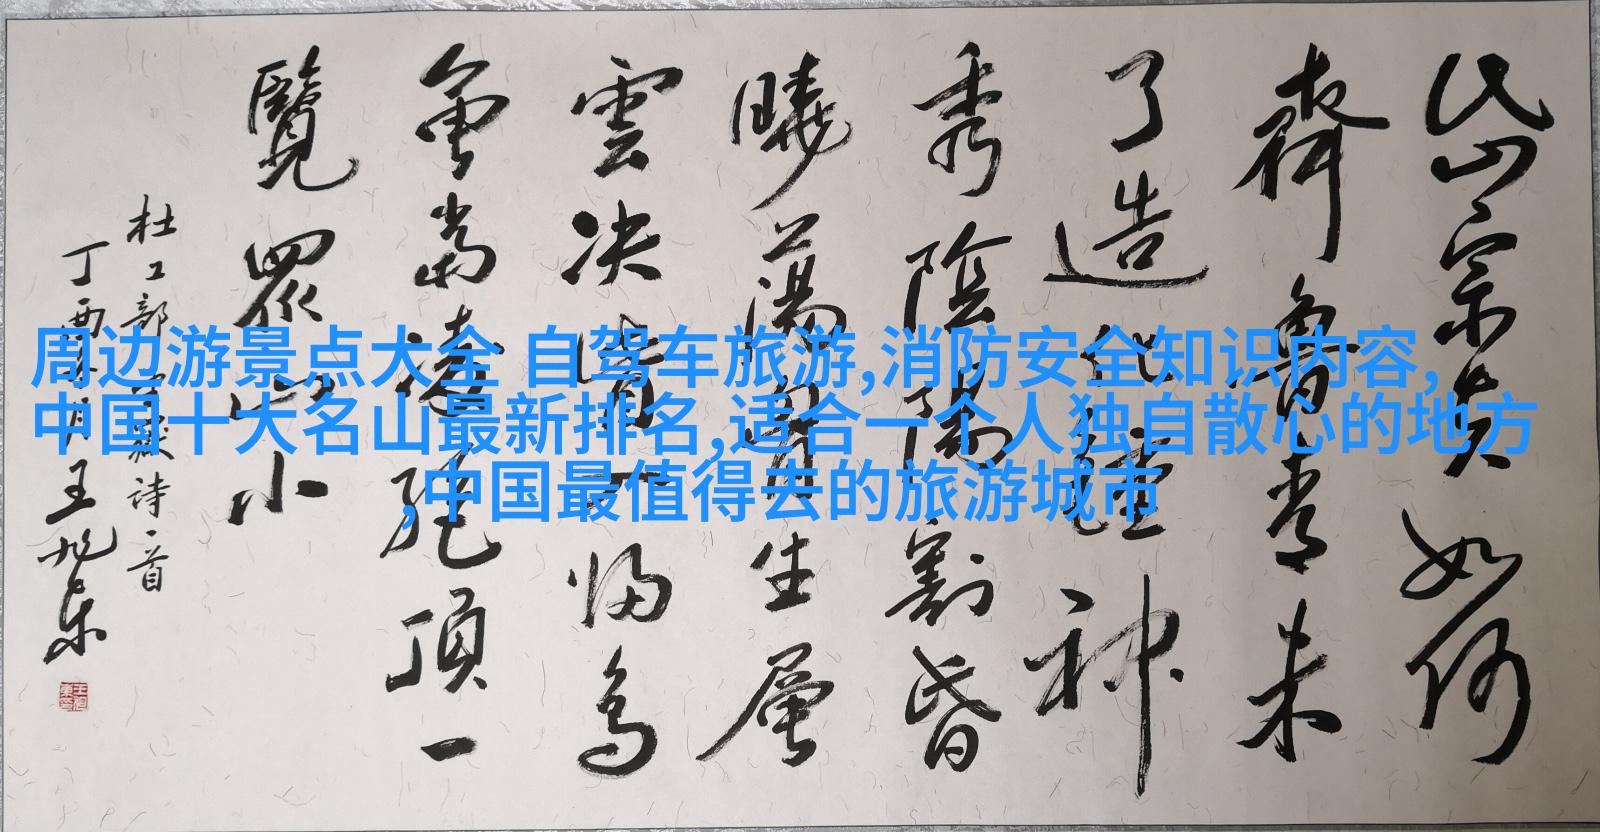 岱宗夫如何
齊魯青未
了造化鍾神
秀陰陽割昏
曉蕩胸生層
雲决眥入歸鳥
會當凌絕頂一
覽眾山小
杜工部望嶽詩一首
丁酉 月王旭东
周边游景点大全 自驾车旅游,消防安全知识内容,
中国十大名山最新排名,适合一个人独自散心的地方
,中国最值得去的旅游城市